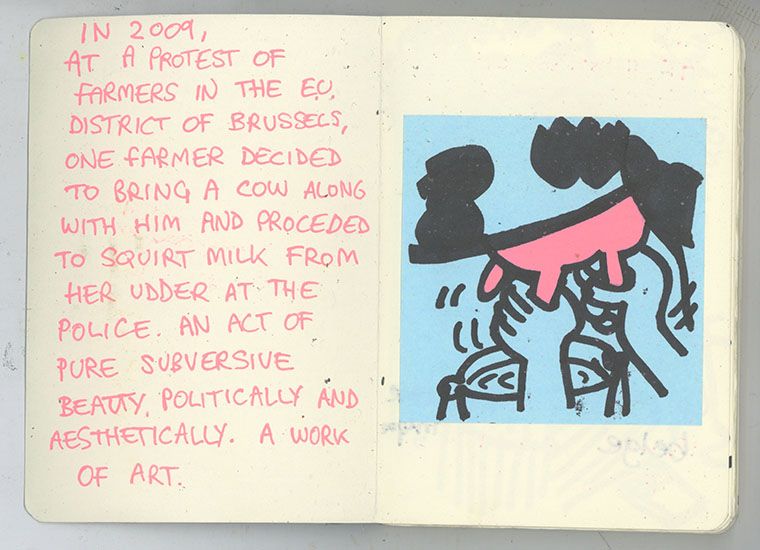 IN 2009,
AT A PROTEST OF
FARMERS IN THE E.U.
DISTRICT OF BRUSSELS,
ONE FARMER DECIDED
TO BRING A COW ALONG
WITH HIM AND PROCEDED
TO SQUIRT MILK FROM
HER UDDER AT THE
POLICE. AN ACT OF
PURE SUBVERSIVE
BEAUTY, POLITICALLY AND
AESTHETICALLY. A WORK
OF ART.